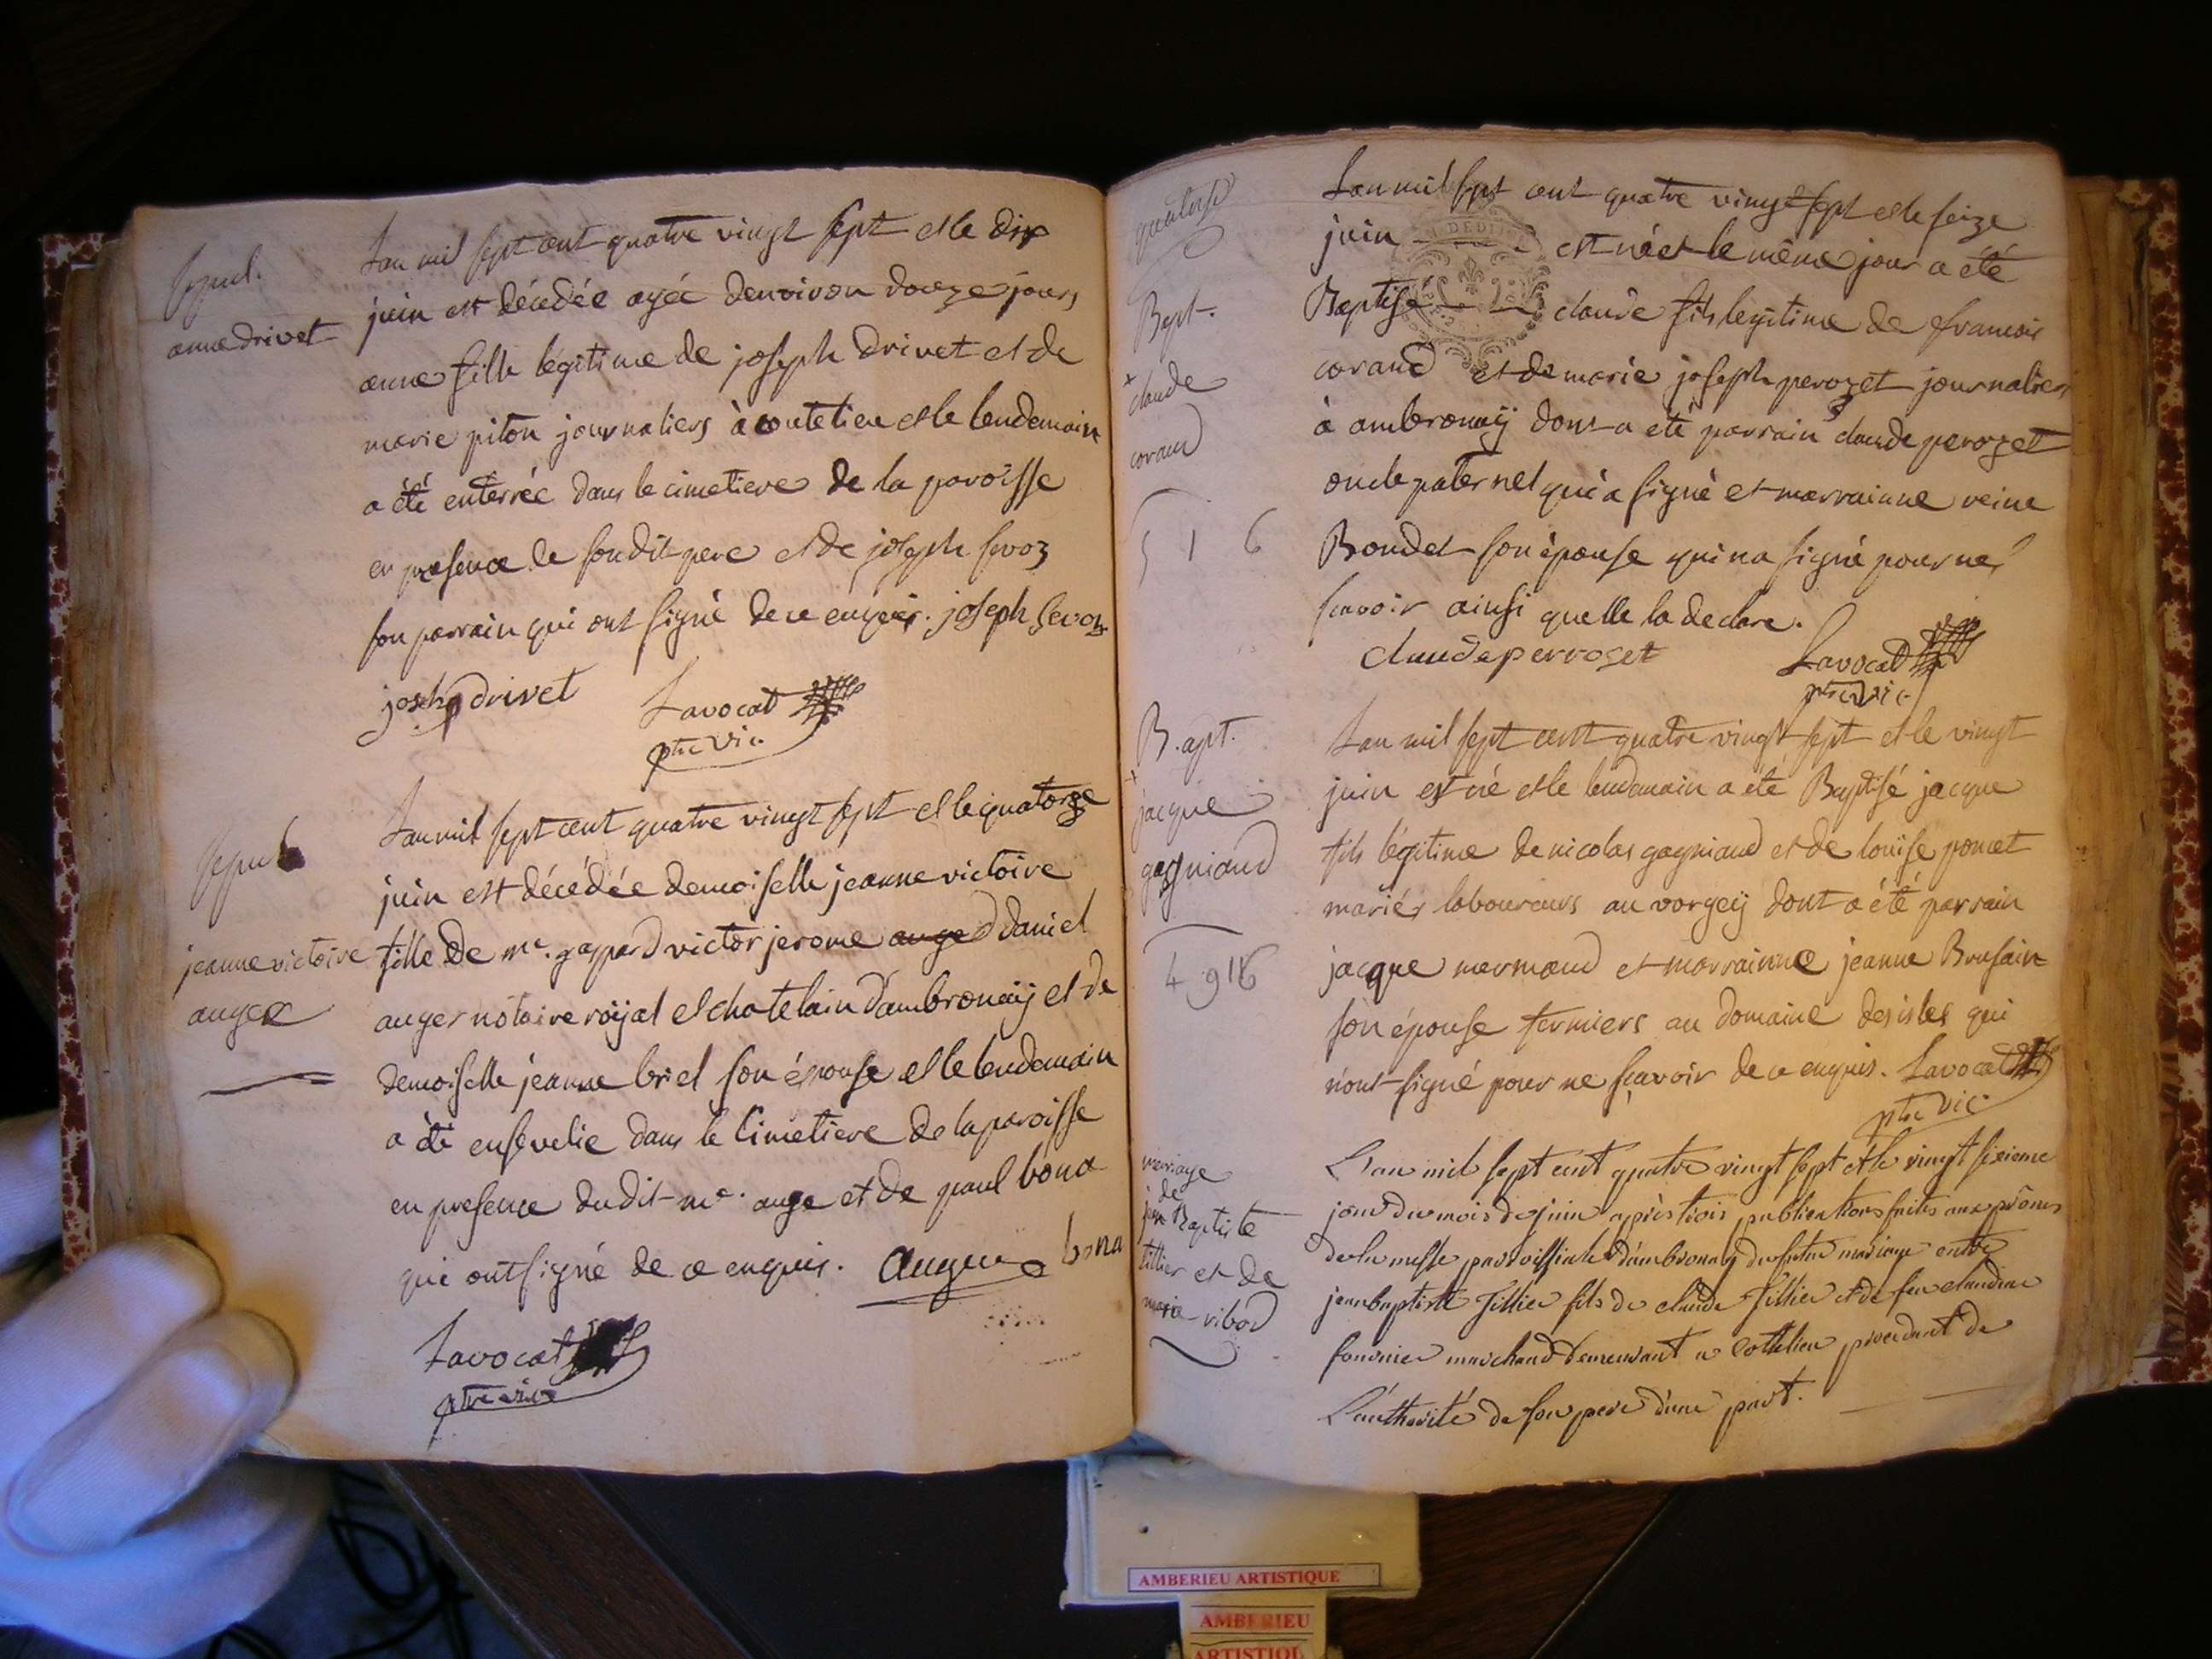 Sepul.
anne drivet
Lan mil sept cent quatre vingt sept et le dix
juin est décédée agée denviron douze jours
anne fille légitime de joseph drivet et de
marie piton journaliers à coutelieu et le lendemain
a été enterrée dans le cimetiere de la paroisse
en presence de son dit pere et de joseph sevoz
son parrain qui ont signé de ce enquis. joseph sevoz
joseph drivet Lavocat
ptre vic.
Sepul
jeanne victoire
auger
Lan mil sept cent quatre vingt sept et le quatorze
juin est décédée demoiselle jeanne victoire
fille de mᵉ. gaspard victor jerome daniel
auger notaire roÿal et chatelain d'ambronaÿ et de
demoiselle jeanne briel son épouse et le lendemain
a été ensevelie dans le Cimetiere de la paroisse
en presence du dit mᵉ. auge et de paul bona
qui ont signé de ce enquis. Auger bona
Lavocat
ptre vic
quatorse
Bapt.
claude
corand
5 1 6
Lan mil sept cent quatre vingt sept et le seize
juin est né et le même jour a été
Baptisé claude fils legitime de francois
corand et de marie joseph perozet journaliers
à ambronaÿ dont a été parrain claude perozet
oncle paternel qui a signé et marrainne reine
Bondet son épouse qui na signé pour ne
scavoir ainsi quelle la declare.
claude perroset Lavocat
ptre vic.
Bapt.
jacque
gagniaud
4 9 16
Lan mil sept cent quatre vingt sept et le vingt
juin est né et le lendemain a été Baptisé jacque
fils légitime de nicolas gagniaud et de louise poncet
mariés laboureurs au vorgeÿ dont a été parrain
jacque mermand et marrainne jeanne Brusain
son épouse fermiers au domaine des isles qui
n'ont signé pour ne scavoir de ce enquis. Lavocat
ptre vic.
mariage
de
jean Baptiste
tillier et de
marie ribod
L'an mil sept cent quatre vingt sept et le vingt sixieme
jour du mois de juin après trois publications faites aux prônes
de la messe parroissiale d'ambronay du futur mariage entre
jean baptiste Tillier fils de claude Tillier et de feu claudine
fournier marchand demeurant a Cottelieu procedant de
L'authorité de son pere d'une part.
AMBERIEU ARTISTIQUE
AMBERIEU
ARTISTIQU